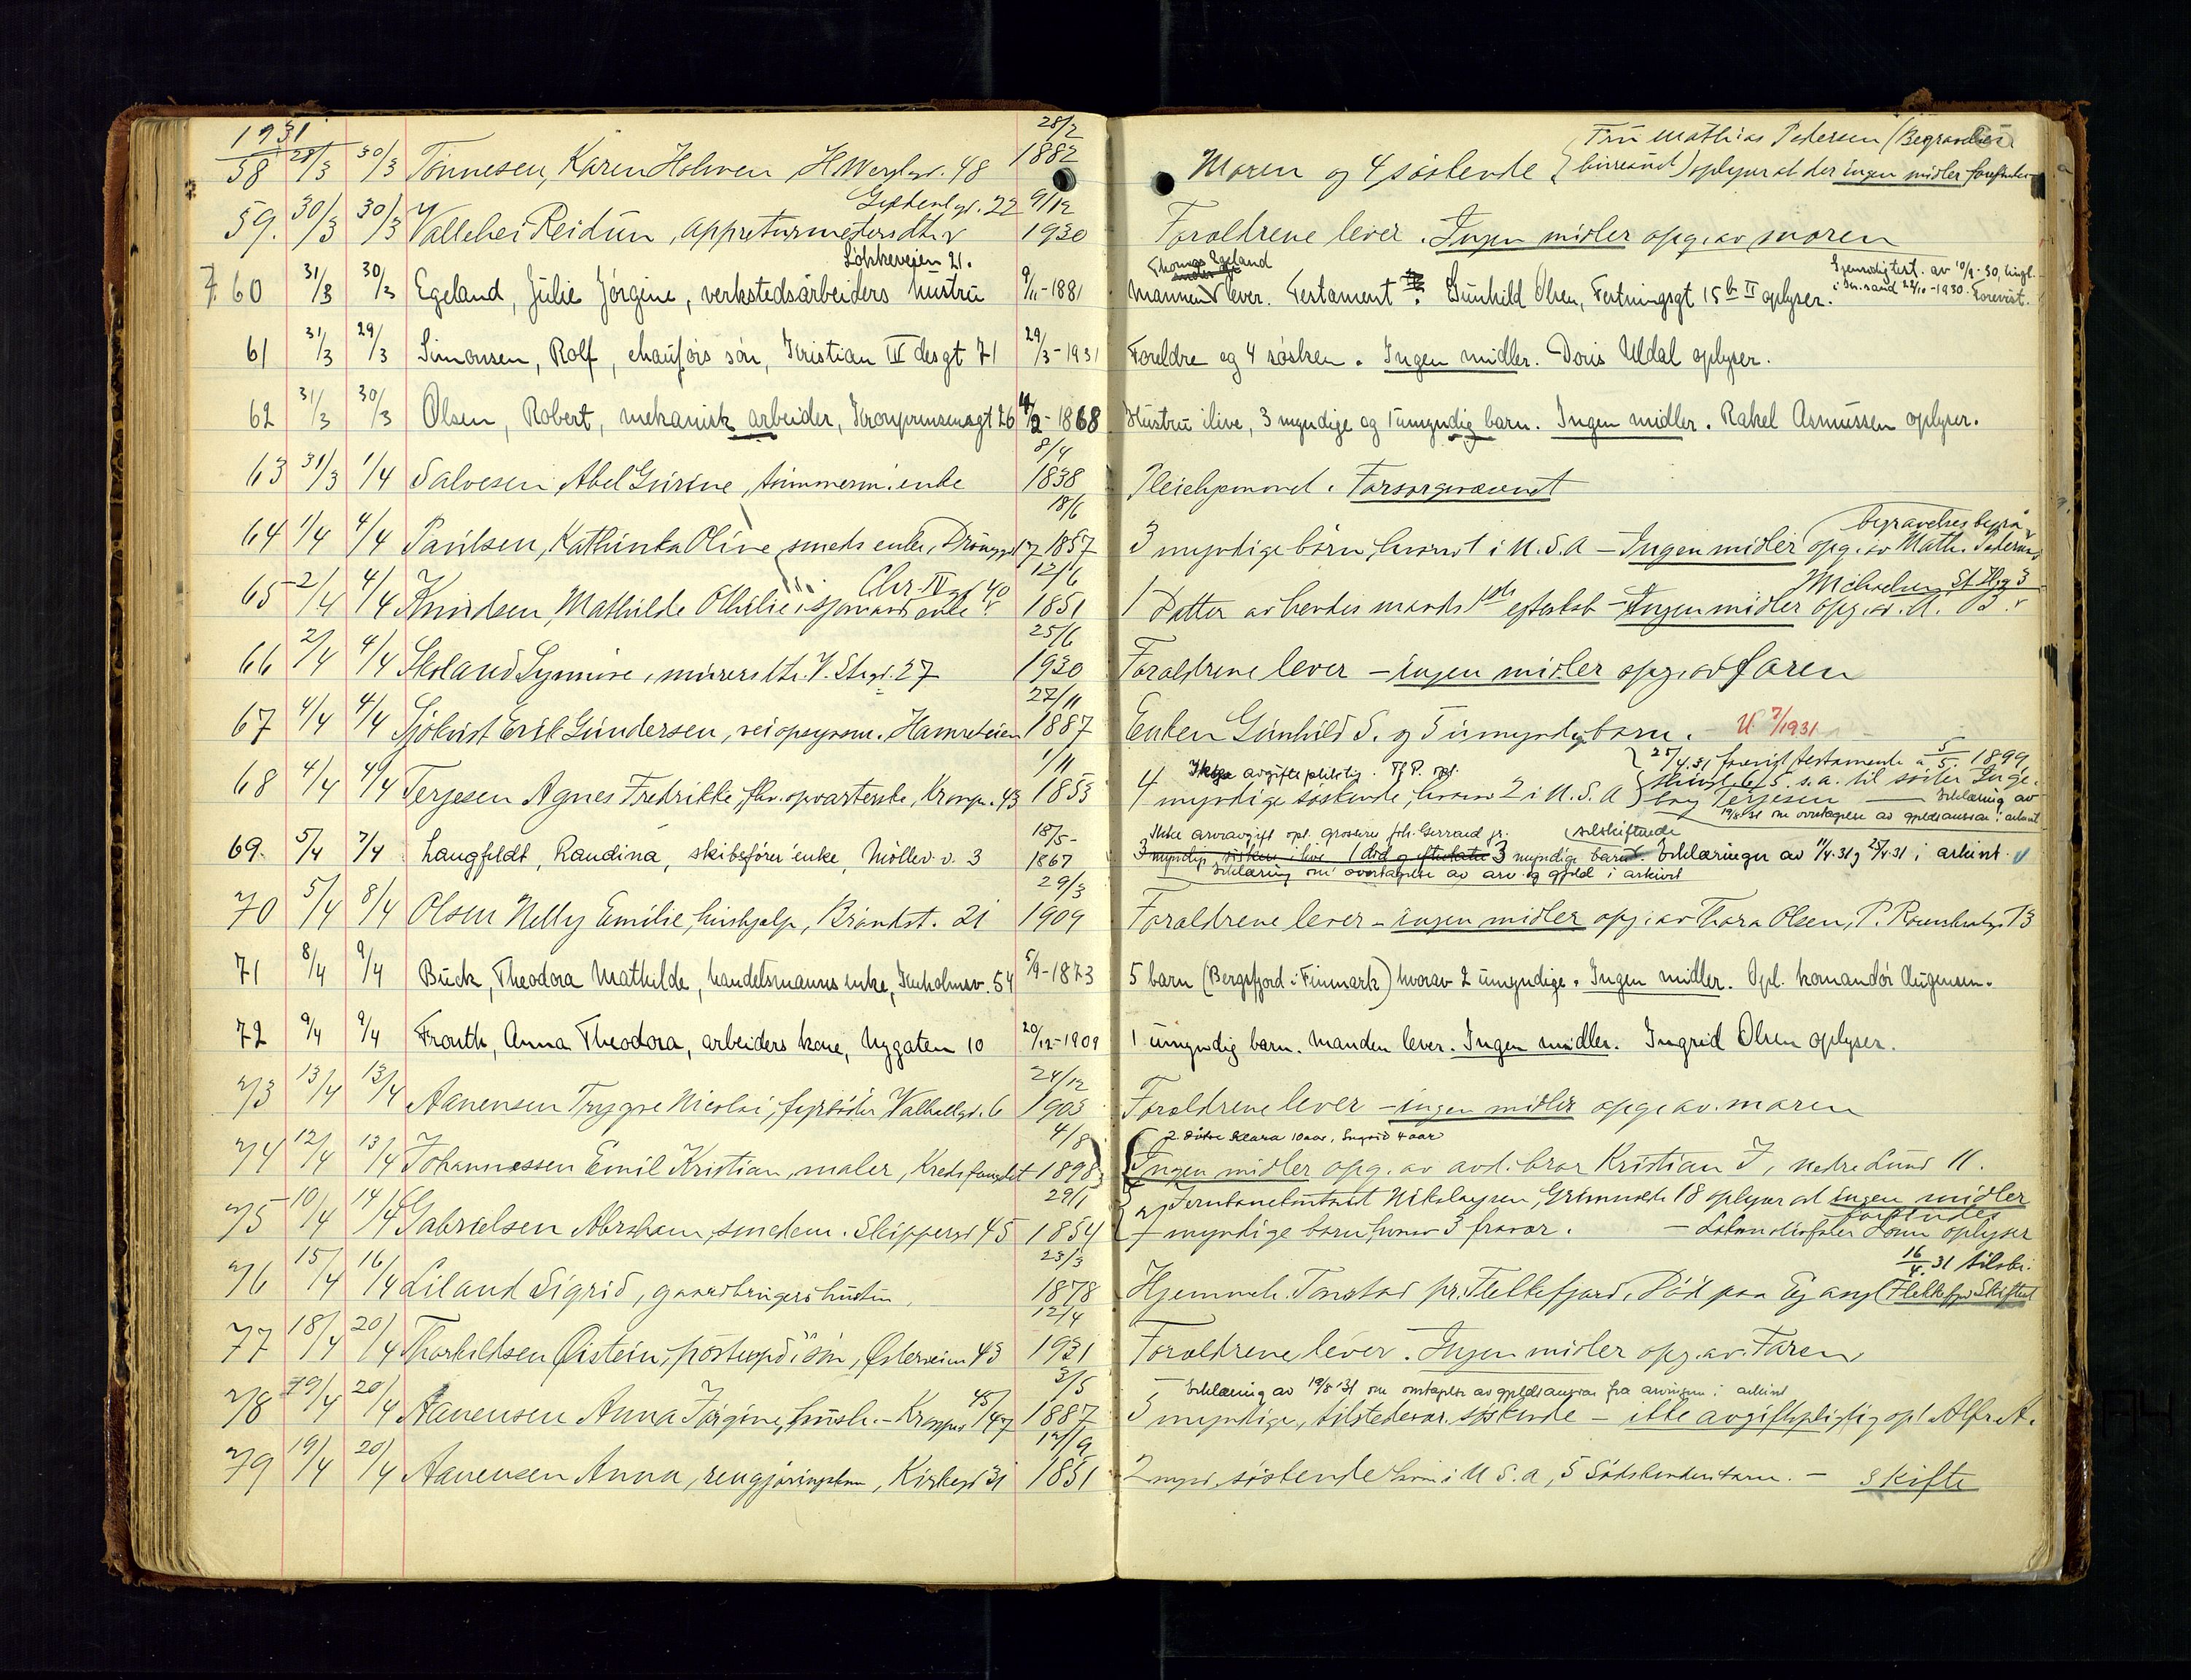 1931
58 28/3 30/3 Tønnesen, Karen Holmen H. Wergl.gd. 48 28/2 1882 Moren og 4 søskende { Fru Mathias Pedersen (Begravelses
birreaut) oplyser at der ingen midler forefindes
59. 30/3 30/3 Vallehei Reidun, appreturmesters dtr. Gyldenl.gt. 22 9/12 1930 Forældrene lever. Ingen midler opg. av moren
60 31/3 30/3 Egeland, Julie Jörgine, verkstedsarbeiders hustru Lökkeveien 21. 9/11-1881 Mannen Thomas Egeland lever. Testament? Gunhild Olsen, Festningsgt 15b II oplyser. Gjensidig test. av 10/9-30, tingl.
i Kr.sand 22/10-1930. Forevist.
61 31/3 29/3 Simonsen, Rolf, chauförs sön, Kristian IV des gt 71 29/3-1931 Foreldre og 4 sösken. Ingen midler. Doris Uldal oplyser.
62 31/3 30/3 Olsen, Robert, mekanisk arbeider, Kronprinsensgt 26 4/2-1868 Hustru ilive, 3 myndige og 1 umyndig barn. Ingen midler. Rakel Asmussen oplyser.
63 31/3 1/4 Salvesen, Abel Gurine, tömmerm. enke 8/4 1838 Pleiehjemmet. Forsorgsvæsenet
64 1/4 4/4 Paulsen, Kathinka Oline, smeds enke, Dronn.gt 17 18/6 1857 3 myndige börn, hvorav 1 i U.S.A – Ingen midler opg. av Math. Pedersens begravelsesbyrå
65 2/4 4/4 Knudsen, Mathilde Othilie, sjömands enke Chr. IV gt 40 12/6 1851 1 Datter av hendes mands 1ste egteskab – Ingen midler opg. av A. B. Michaelsen, St. H.g. 3
66 2/4 4/4 Skoland Synnöve, murers dtr. V. Str.gt. 27 25/6 1930 Forældrene lever – ingen midler opg. av faren
67 4/4 4/4 Sjökvist Erik Gundersen, veiopsynsm. Hamreheien 27/11 1887 Enken Gunhild S. og 5 umyndig barn. U. 7/1931
68 4/4 4/4 Terjesen Agnes Fredrikke, fhv. opvarterske, Kronpr. 43 1/11 1853 Ikke avgiftspliktig. Tf. P. opl.
4 myndige söskende, hvorav 2 i U.S.A } 25/4.31 forevist testamente a 5/5. 1899
tingl. 6/5 s.a. til söster Inge-
borg Terjesen – Erklæring av
19/8 31 om overtagelse av gjeldsansvar i arkivet
69. 5/4 7/4 Langfeldt, Randina, skibsförer enke, Möllev. v. 3 18/5- 1867 Ikke arveavgift opl. grosserer Joh. Gerrard jr. (selvskiftende
3 myndig sösken i live 1 död og efterlater 3 myndige barn. Erklæringer av 11/4.31 og 25/4 31 i arkivet. v
Erklæring om overtagelse av arv og gjeld i arkivet
70 5/4 8/4 Olsen Nelly Emilie, hushjelp, Brönkst. 21 29/3 1909 Forældrene lever – ingen midler opg. av Thora Olsen, P. 13
71 8/4 9/4 Buck, Theodora Mathilde, handelsmanns enke, Kuholmsv. 54 5/9-1873 5 barn (Bergsfjord i Finmark) hvorav 2 umyndige. Ingen midler. Opl. komandör Augensen.
72 9/4 9/4 Frouth, Anna Theodora, arbeiders kone, Nygaten 10 20/12-1909 1 umyndig barn. Manden lever. Ingen midler. Ingrid Olsen oplyser.
73 13/4 13/4 Aanensen Trygve Nicolai, fyrböder Valhallgt. 6 24/12 1903 Forældrene lever – ingen midler opg. av moren
74 12/4 13/4 Johannessen Emil Kristian, maler, Kredsfængslet 4/8 1898 2 Döttre Klara 10 aar, Ingrid 4 aar
Ingen midler opg. av avd. bror Kristian J, Nedre Lund 11.
75 10/4 14/4 Gabrielsen Abraham, smedem. Skippergt 45 29/1 1854 Jernbanebetjent Nikolaysen, Grimsveien 18 oplyser at ingen midler
forefindes
7 myndige barn, hvorav 3 fravær. – Lokomotivförer Lönn oplyser
76 15/4 16/4 Liland Sigrid, gaardbrugers hustru, 23/3 1878 Hjemmeh. Tonstad pr. Flekkefjord. Död paa Eg asyl 16/4.31 tilskr. Flekkefjord Skifteret
77 18/4 20/4 Thorkildsen Öistein, postexpd's sön, Österveien 43 12/4 1931 Forældrene lever. Ingen midler opg. av Faren
78 19/4 20/4 Aanensen Anna Jörgine, hush. – Kronpr. 45/47 3/5 1887 Erklæring av 19/8 31 om overtagelse av gjeldsansvar fra arvingene i arkivet
5 myndige, tilstedevær. söskende – ikke avgiftspligtig opl. Alfr. A.
79 19/4 20/4 Aanensen Anna, rengjöringskone, Kirkegt 31 12/9 1851 2 mynd. söskende hvorav i U.S.A, 5 Södskendebarn. – skifte